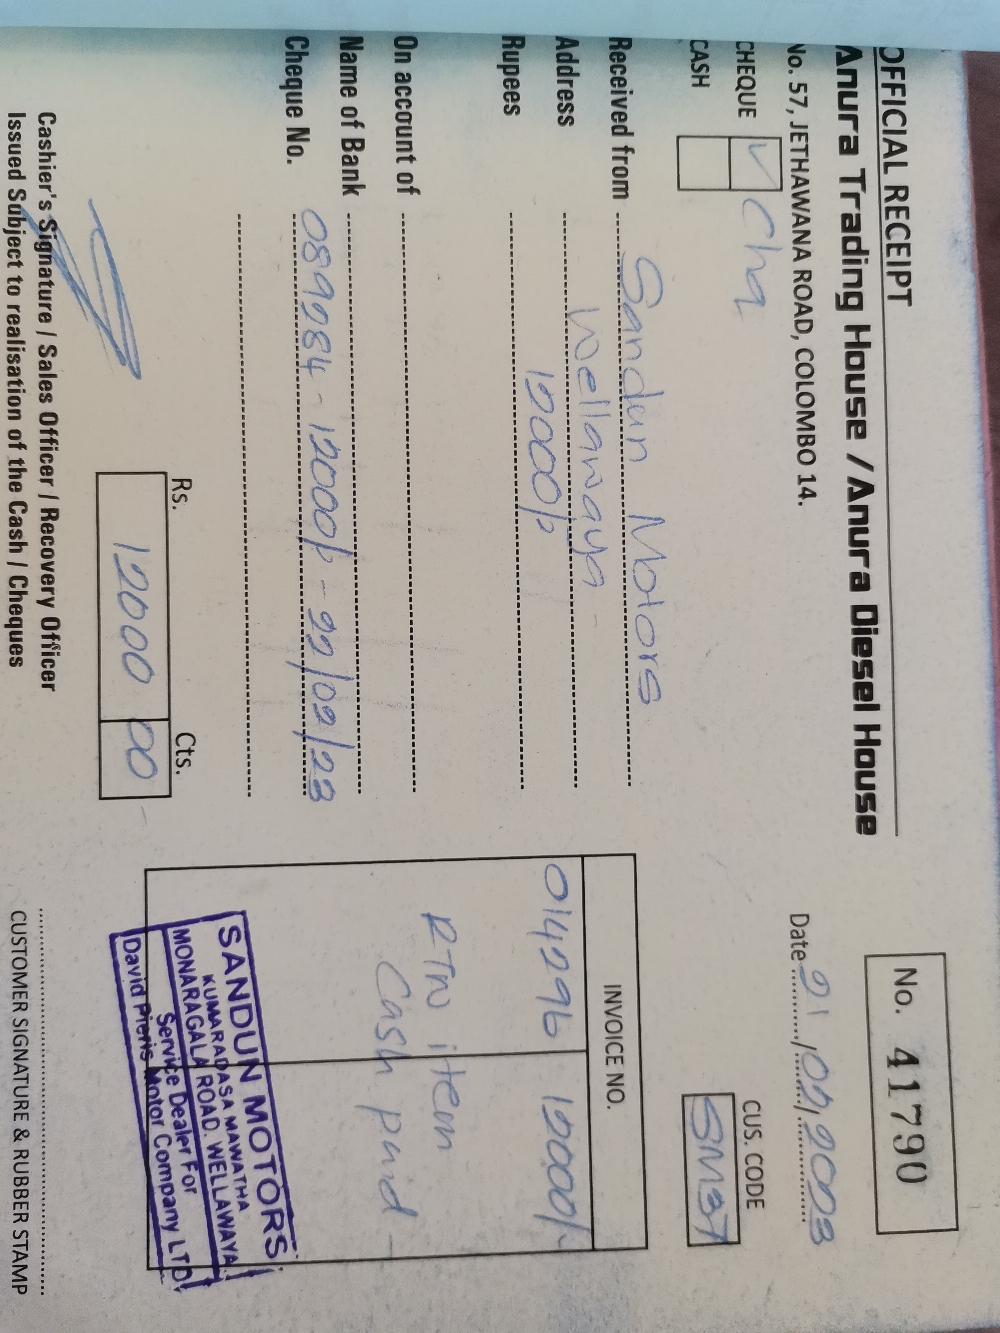 OFFICIAL RECEIPT
Anura Trading House / Anura Diesel House
No. 57, JETHAWANA ROAD, COLOMBO 14.
No. 41790
Date 21/02/2023
CHEQUE ✓ Chq
CASH
CUS. CODE
SM37
Received from Sandun Motors
Address Wellawaya
Rupees 12000/=
On account of
Name of Bank
Cheque No. 089984 - 12000/= - 22/02/23
INVOICE NO.
014296 12000/-
RTN item
Cash paid
Rs. Cts.
12000 00
SANDUN MOTORS
KUMARADASA MAWATHA
MONARAGALA ROAD. WELLAWAYA
Service Dealer For
David Pieris Motor Company LTD
Cashier's Signature / Sales Officer / Recovery Officer
Issued Subject to realisation of the Cash / Cheques
CUSTOMER SIGNATURE & RUBBER STAMP